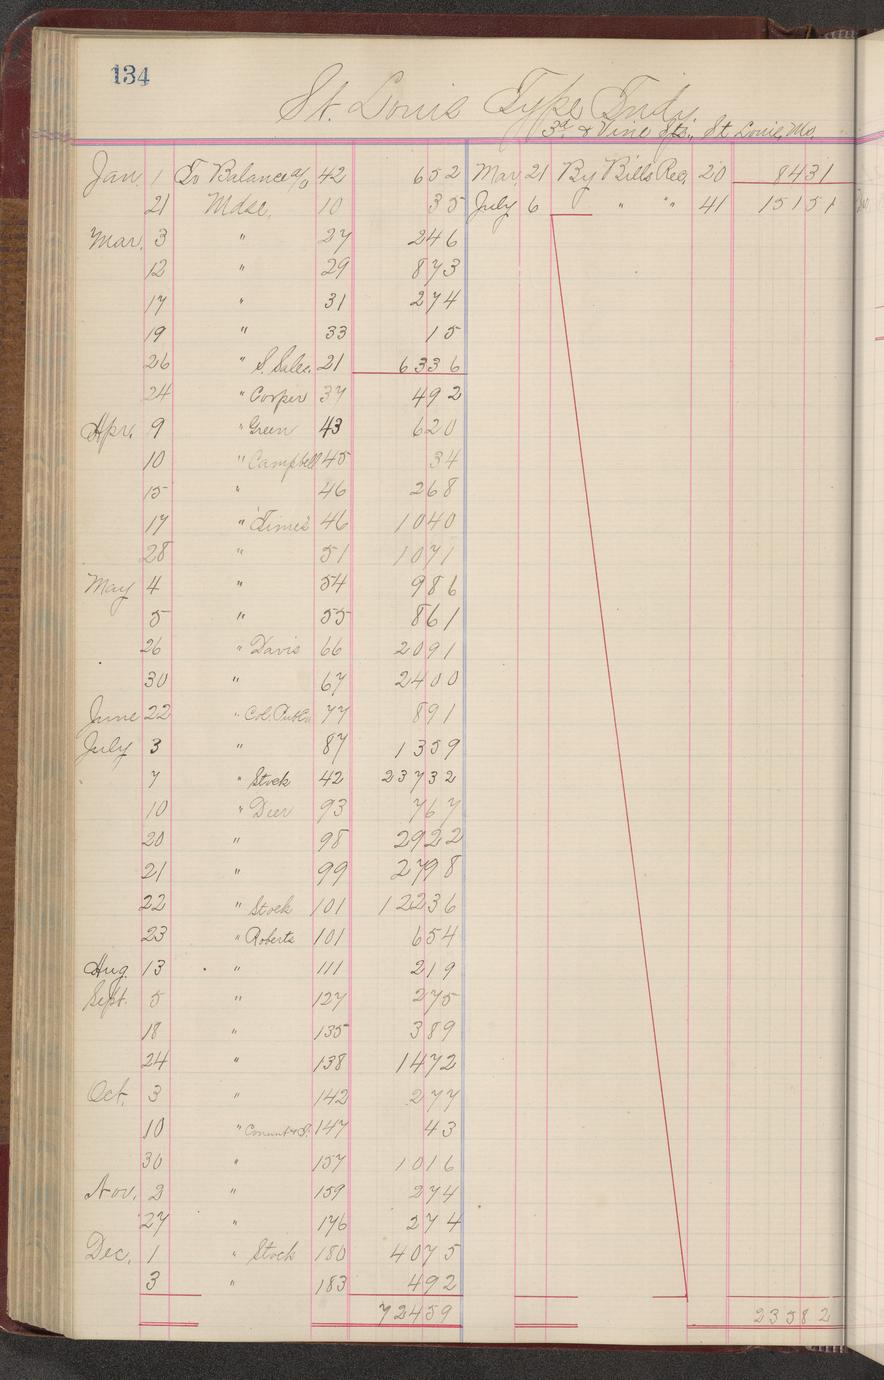 134
St. Louis Type Fndy.
3d & Vine Sts., St Louis, Mo.
Jan. 1 To Balance a/c 42 652 Mar. 21 By Bills Rec. 20 8431
21 Mdse. 10 35 July 6 " " 41 15151
Mar. 3 " 27 246
12 " 29 873
17 " 31 274
19 " 33 15
26 " S. Sales. 21 6336
24 " Cooper 37 492
Apr. 9 " Green 43 620
10 " Campbell 45 34
15 " 46 268
17 " Times 46 1040
28 " 51 1071
May 4 " 54 986
5 " 55 861
26 " Davis 66 2091
30 " 67 2400
June 22 " Col. Pub Co 77 891
July 3 " 87 1359
7 " Stock 42 23732
10 " Deer 93 767
20 " 98 2922
21 " 99 2798
22 " Stock 101 12236
23 " Roberts 101 654
Aug. 13 " 111 219
Sept. 5 " 127 275
18 " 135 389
24 " 138 1472
Oct. 3 " 142 277
10 " 147 43
30 " 157 1016
Nov. 2 " 159 274
27 " 176 274
Dec. 1 " Stock 180 4075
3 " 183 492
72459 23582